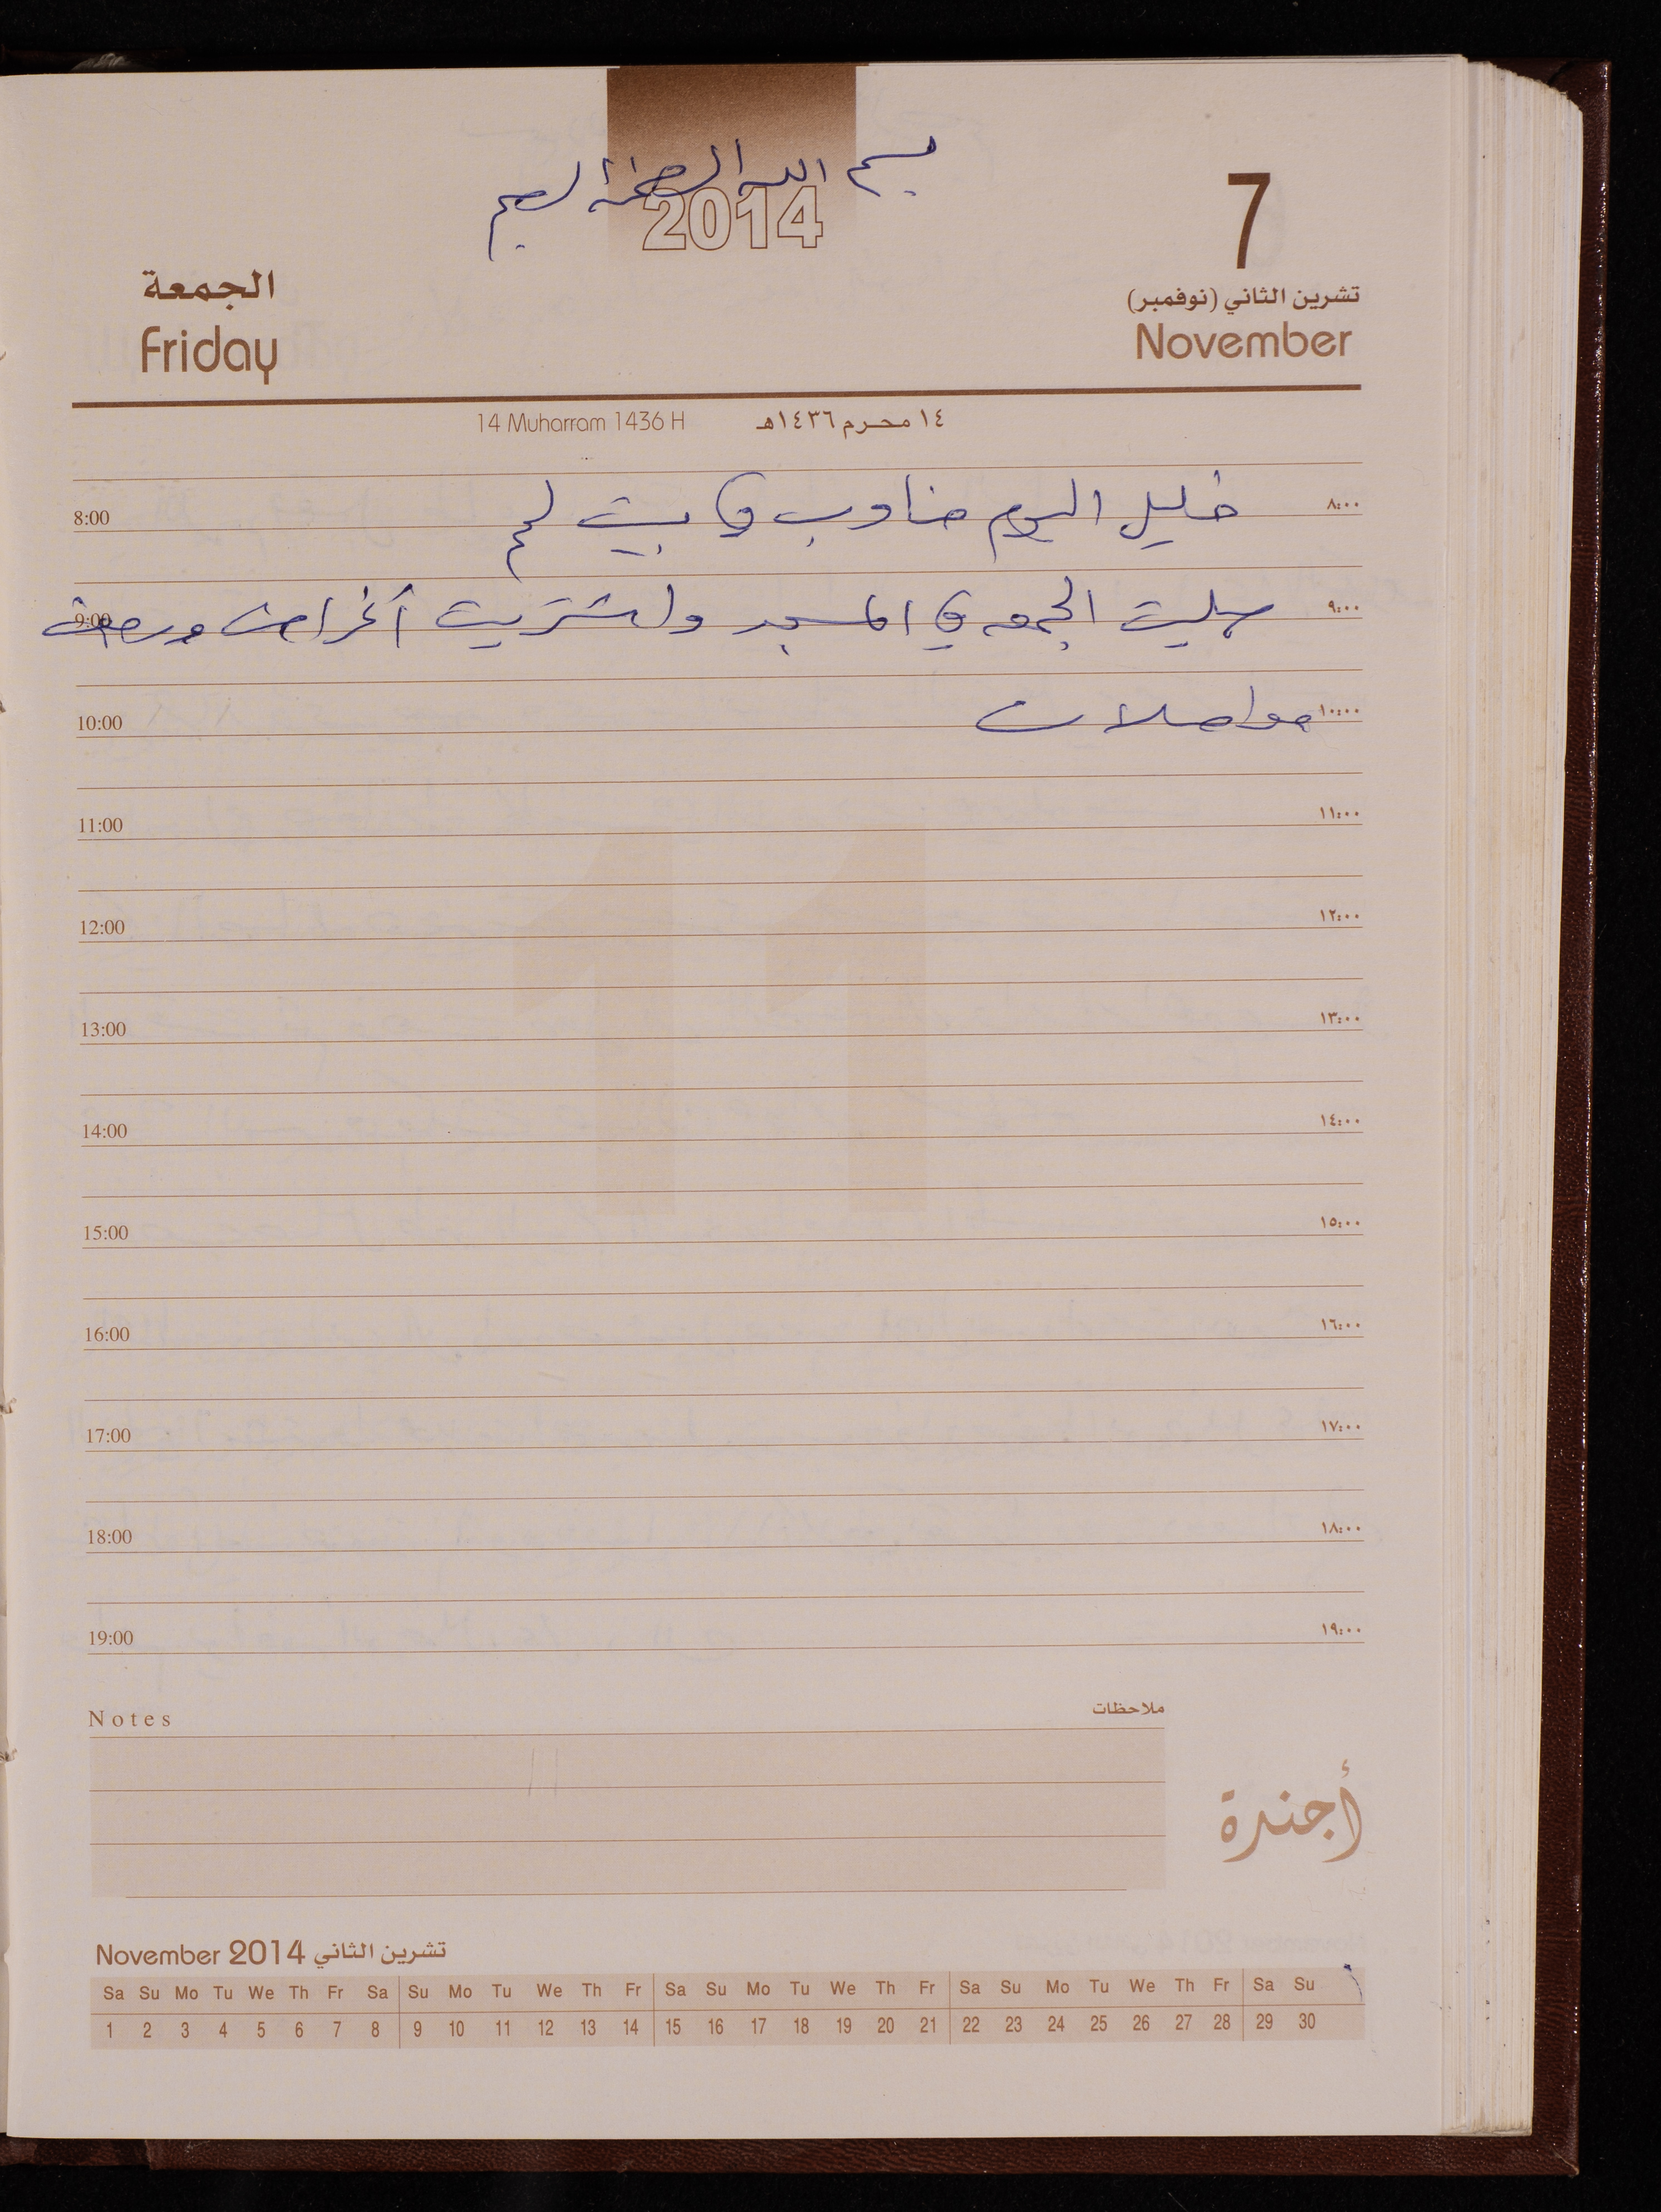 بسم الله الرحمن الرحيم
2014
7
تشرين الثاني (نوفمبر)
November
الجمعة
Friday
14 Muharram 1436 H ١٤ محرم ١٤٣٦هـ
خليل اليوم مناوب في بيت لحم
8:00 ٨:٠٠
صليت الجمعه في المسجد واشتريت أغراض
9:00 ٩:٠٠
مواصلات
10:00 ١٠:٠٠
11:00 ١١:٠٠
11
12:00 ١٢:٠٠
13:00 ١٣:٠٠
14:00 ١٤:٠٠
15:00 ١٥:٠٠
16:00 ١٦:٠٠
17:00 ١٧:٠٠
18:00 ١٨:٠٠
19:00 ١٩:٠٠
Notes ملاحظات
أجندة
November 2014 تشرين الثاني
Sa Su Mo Tu We Th Fr Sa Su Mo Tu We Th Fr Sa Su Mo Tu We Th Fr Sa Su Mo Tu We Th Fr Sa Su
1 2 3 4 5 6 7 8 9 10 11 12 13 14 15 16 17 18 19 20 21 22 23 24 25 26 27 28 29 30